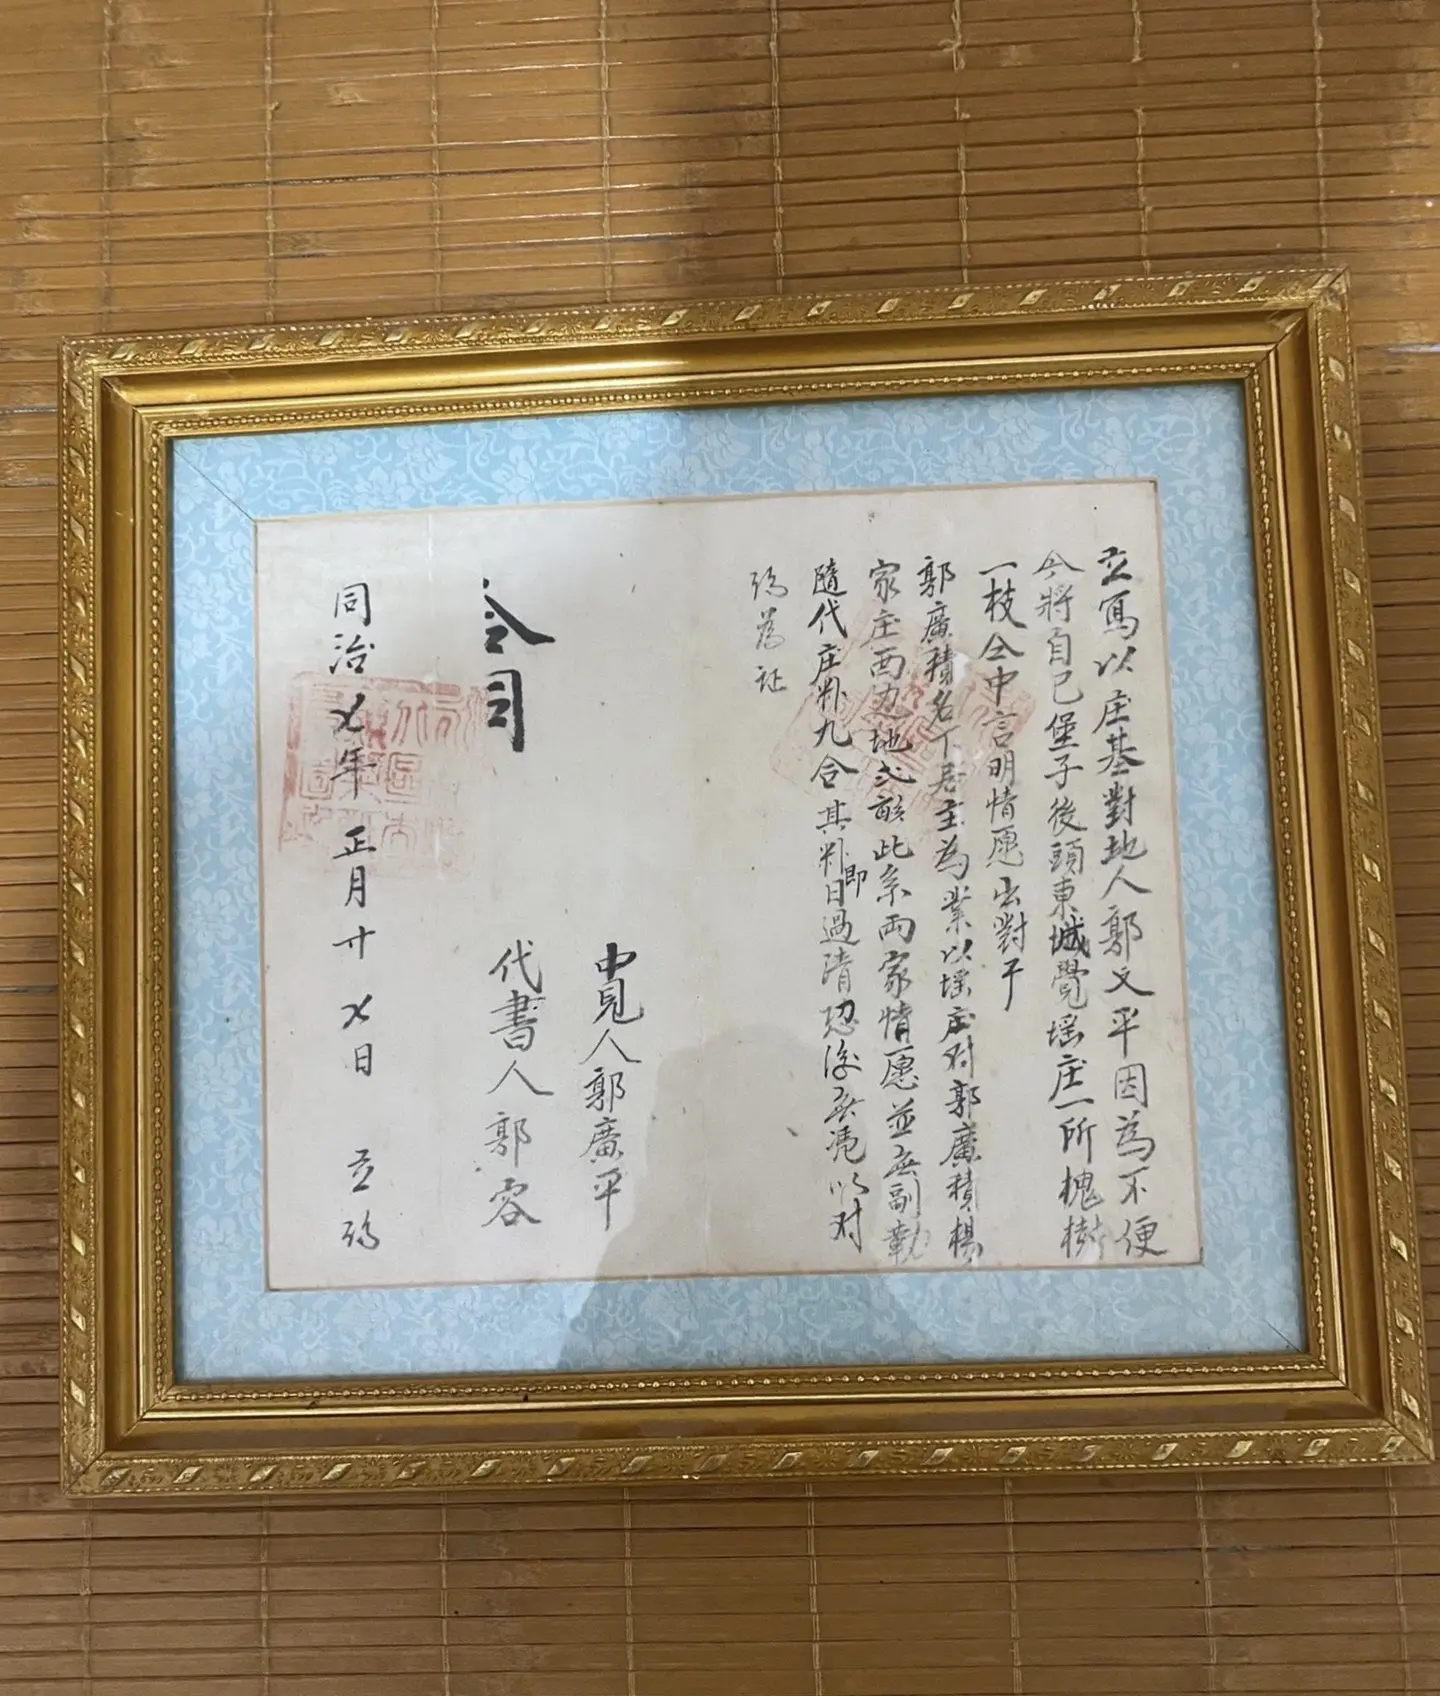 立寫以庄基對地人郭文平因為不便
今將自己堡子後頭東城覺瑶庄一所槐樹
一枝仝中言明情愿出對于
郭廣積名下居主為業以瑶庄对郭廣積楊
家庄西边地弍畝此系両家情愿並無副勒
隨代庄粆九合其粆即日過清恐後無凴以对
約為证
中見人郭廣平
代書人郭容
合同
同治七年 正月廿七日 立約